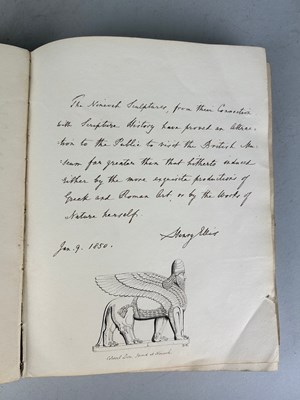 The Nineveh Sculptures, from their Connection
with Scripture History have proved an Attrac-
tion to the Public to visit the British Mu-
seum far greater than that hitherto
either by the more exquisite productions of
Greek and Roman Art, or by the Works of
Nature herself.
Henry Ellis
Jan. 9. 1850.
Winged Lion found at Nimroud